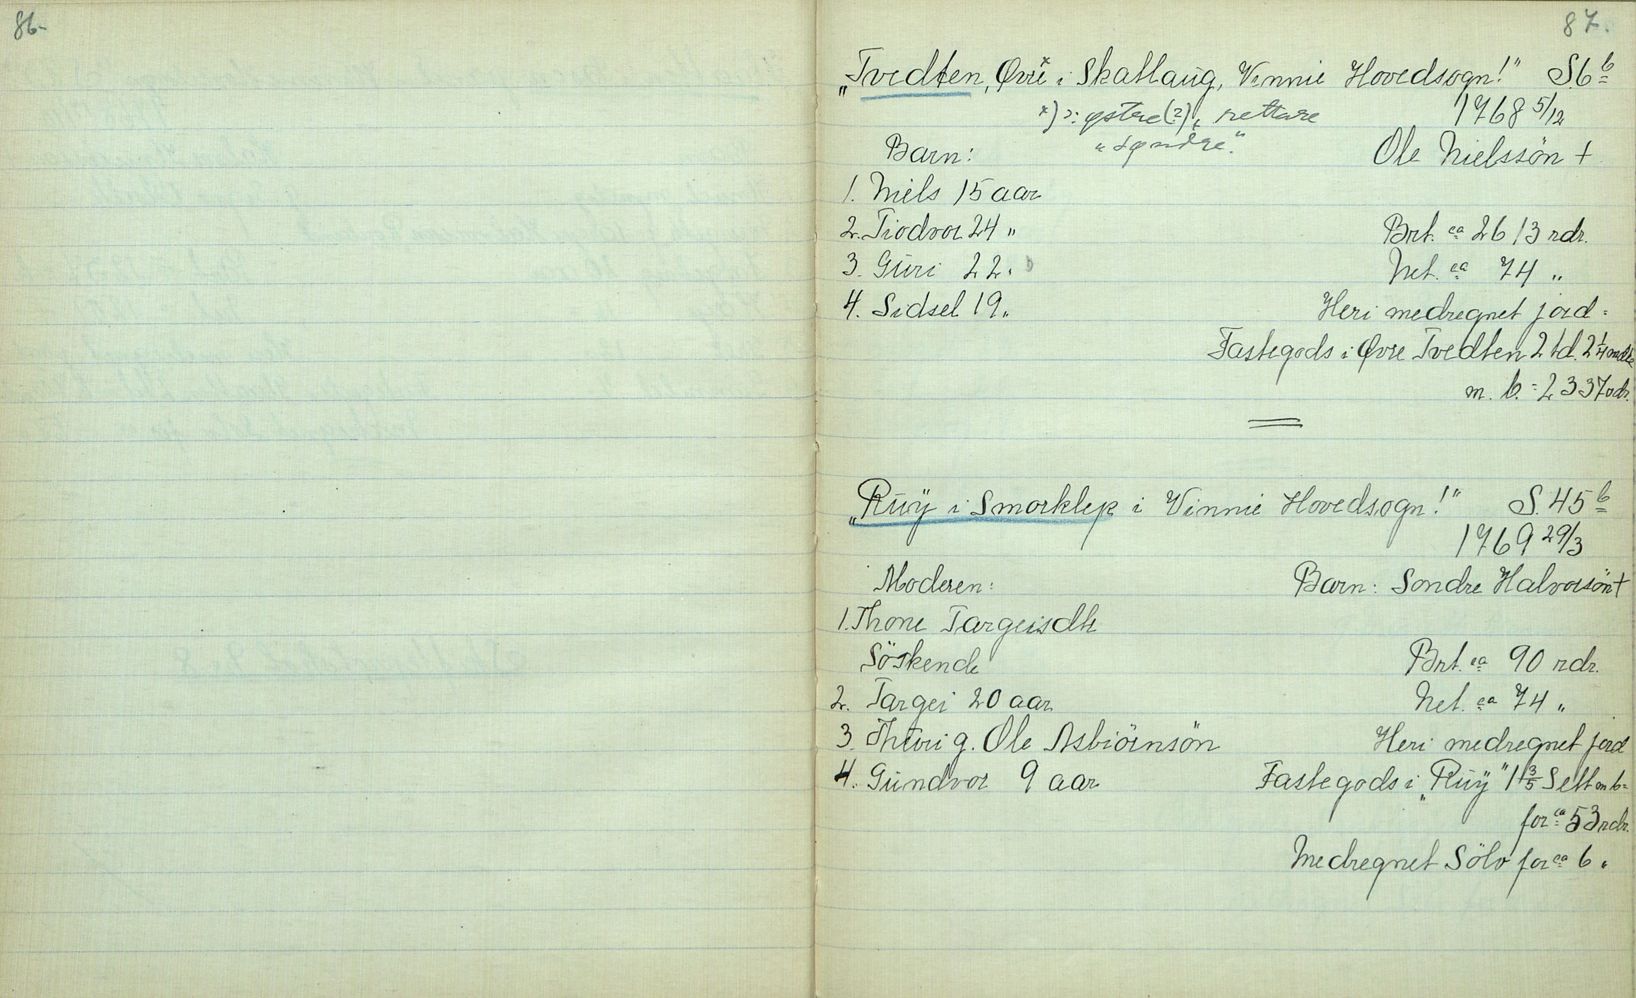 86.
87.
"Tvedten, Øvre* i Skatlaug, Vinnie Hovedsogn!" S.6b
*) ɔ: østre (?), rettare 1768 5/12
"søndre".
Barn: Ole Nielssön †
1. Niels 15 aar
2. Tiodvor 24 " Brt. ca 2613 rdr.
3. Guri 22 " Net. ca 74 "
4. Sidsel 19 " Heri medregnet jord:
Fastegods i Øvre Tvedten 2 td. 2 1/4
m. b. = 2337 rdr.
"Ruÿ i Smorklep i Vinnie Hovedsogn!" S.45b
1769 29/3
Moderen: Barn: Sondre Halvorsön †
1. Thone Targeisdtr
Söskende Brt. ca 90 rdr.
2. Targei 20 aar Net. ca 74 "
3. Thuri g. Ole Asbiörnsön Heri medregnet jord
4. Gundvor 9 aar Fastegods i "Ruÿ" 1 3/5 Sett m b=
for ca 53 rdr.
Medregnet Sölv for ca 6 "